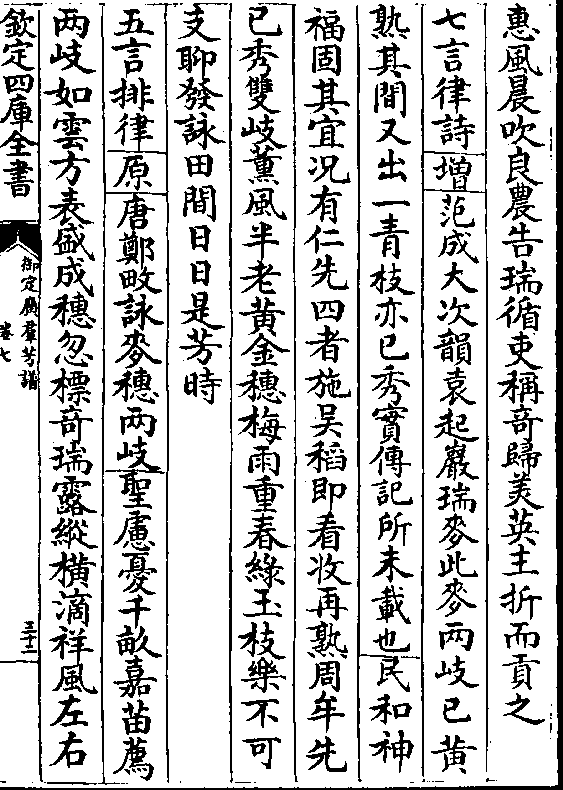 惠風晨吹良農告瑞循吏稱竒歸美英主折而貢之
七言律詩增范成大次韻袁起巖瑞麥此麥兩岐已黄
熟其間又出一青枝亦已秀實傳記所未載也民和神
福固其宜况有仁先四者施吴稻即看收再熟周牟先
已秀雙岐薰風半老黄金穗梅雨重春綠玉枝樂不可
支聊發詠田間日日是芳時
五言排律原唐鄭畋詠麥穗兩岐聖慮憂千畝嘉苗薦
兩岐如雲方表盛成穗忽標竒瑞露縱横滴祥風左右
欽定四庫全書
御定廣羣芳譜
卷七
三十二